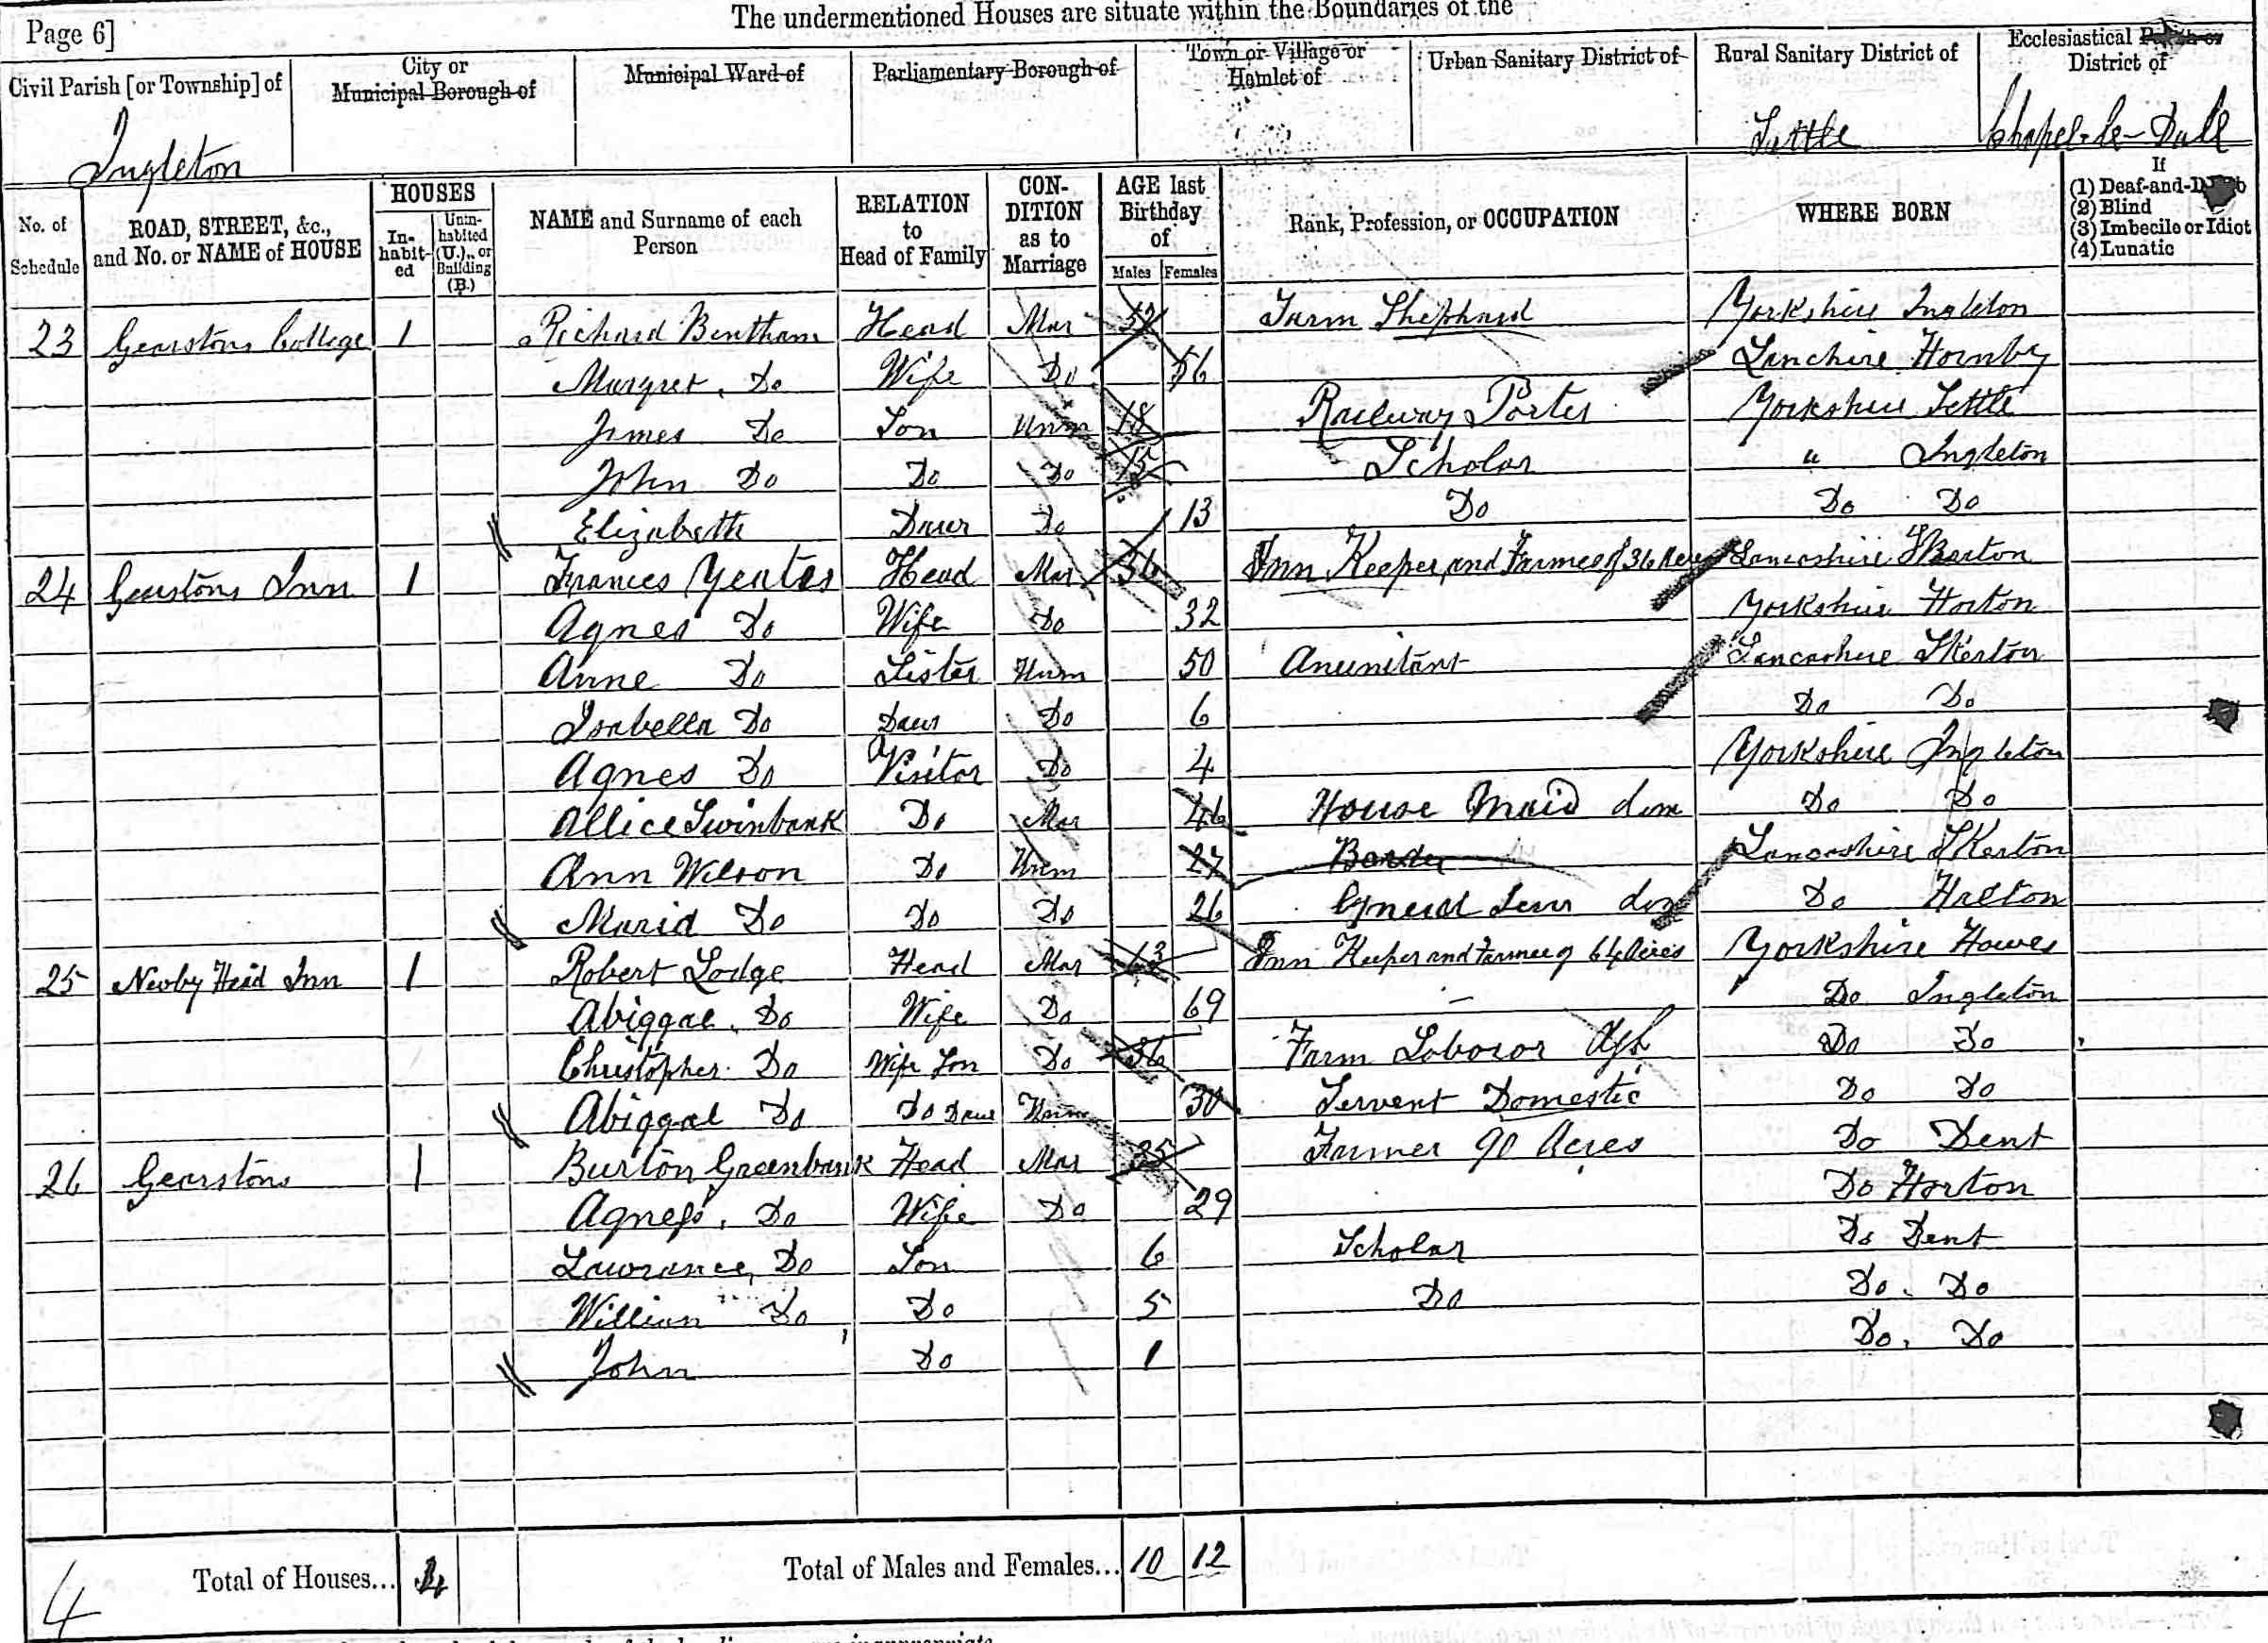 The undermentioned Houses are situate within the Boundaries of the
Page 6]
Civil Parish [or Township] of
City or Municipal Borough of
Municipal Ward of
Parliamentary Borough of
Town or Village or Hamlet of
Urban Sanitary District of
Rural Sanitary District of
Ecclesiastical Parish or District of
Ingleton
Settle
Chapel-le-Dale
No. of Schedule
ROAD, STREET, &c., and No. or NAME of HOUSE
HOUSES
In-habit-ed
Unin-habited (U.), or Building (B.)
NAME and Surname of each Person
RELATION to Head of Family
CON-DITION as to Marriage
AGE last Birthday of
Males
Females
Rank, Profession, or OCCUPATION
WHERE BORN
If
(1) Deaf-and-Dumb
(2) Blind
(3) Imbecile or Idiot
(4) Lunatic
23 Gearstons Cottage 1 Richard Bentham Head Mar Farm Shephard Yorkshire Ingleton
Margret, Do Wife Do 56 Lanchire Hornby
James Do Son Unm 18 Railway Porter Yorkshire Settle
John Do Do Do 15 Scholar " Ingleton
Elizabeth Daur Do 13 Do Do Do
24 Gearstons Inn 1 Frances Yeates Head Mar 36 Inn Keeper and Farmer of 36 Acres Lancashire Skerton
Agnes Do Wife Do 32 Yorkshire Horton
Anne Do Sister Unm 50 Anunitant Lancashire Skerton
Isabella Do Daur Do 6 Do Do
Agnes Do Visitor Do 4 Yorkshire Ingleton
Allice Swinbank Do Mar 46 House Maid dom Do Do
Ann Wilson Do Unm 27 Border Lancashire Skerton
Maria Do Do Do 26 General Serv dom Do Halton
25 Newby Head Inn 1 Robert Lodge Head Mar 63 Inn Keeper and Farmer of 64 Acres Yorkshire Hawes
Abiggal, Do Wife Do 69 Do Ingleton
Christopher Do Wife Son Do 36 Farm Laboror Do Do
Abiggal Do Do Daur Unm 30 Servent Domestic Do Do
26 Gearstons 1 Burton Greenbank Head Mar 25 Farmer 90 Acres Do Dent
Agness, Do Wife Do 29 Do Horton
Lawrance, Do Son 6 Scholar Do Dent
William Do Do 5 Do Do. Do
John Do 1 Do. Do
4 Total of Houses... 4 Total of Males and Females... 10 12